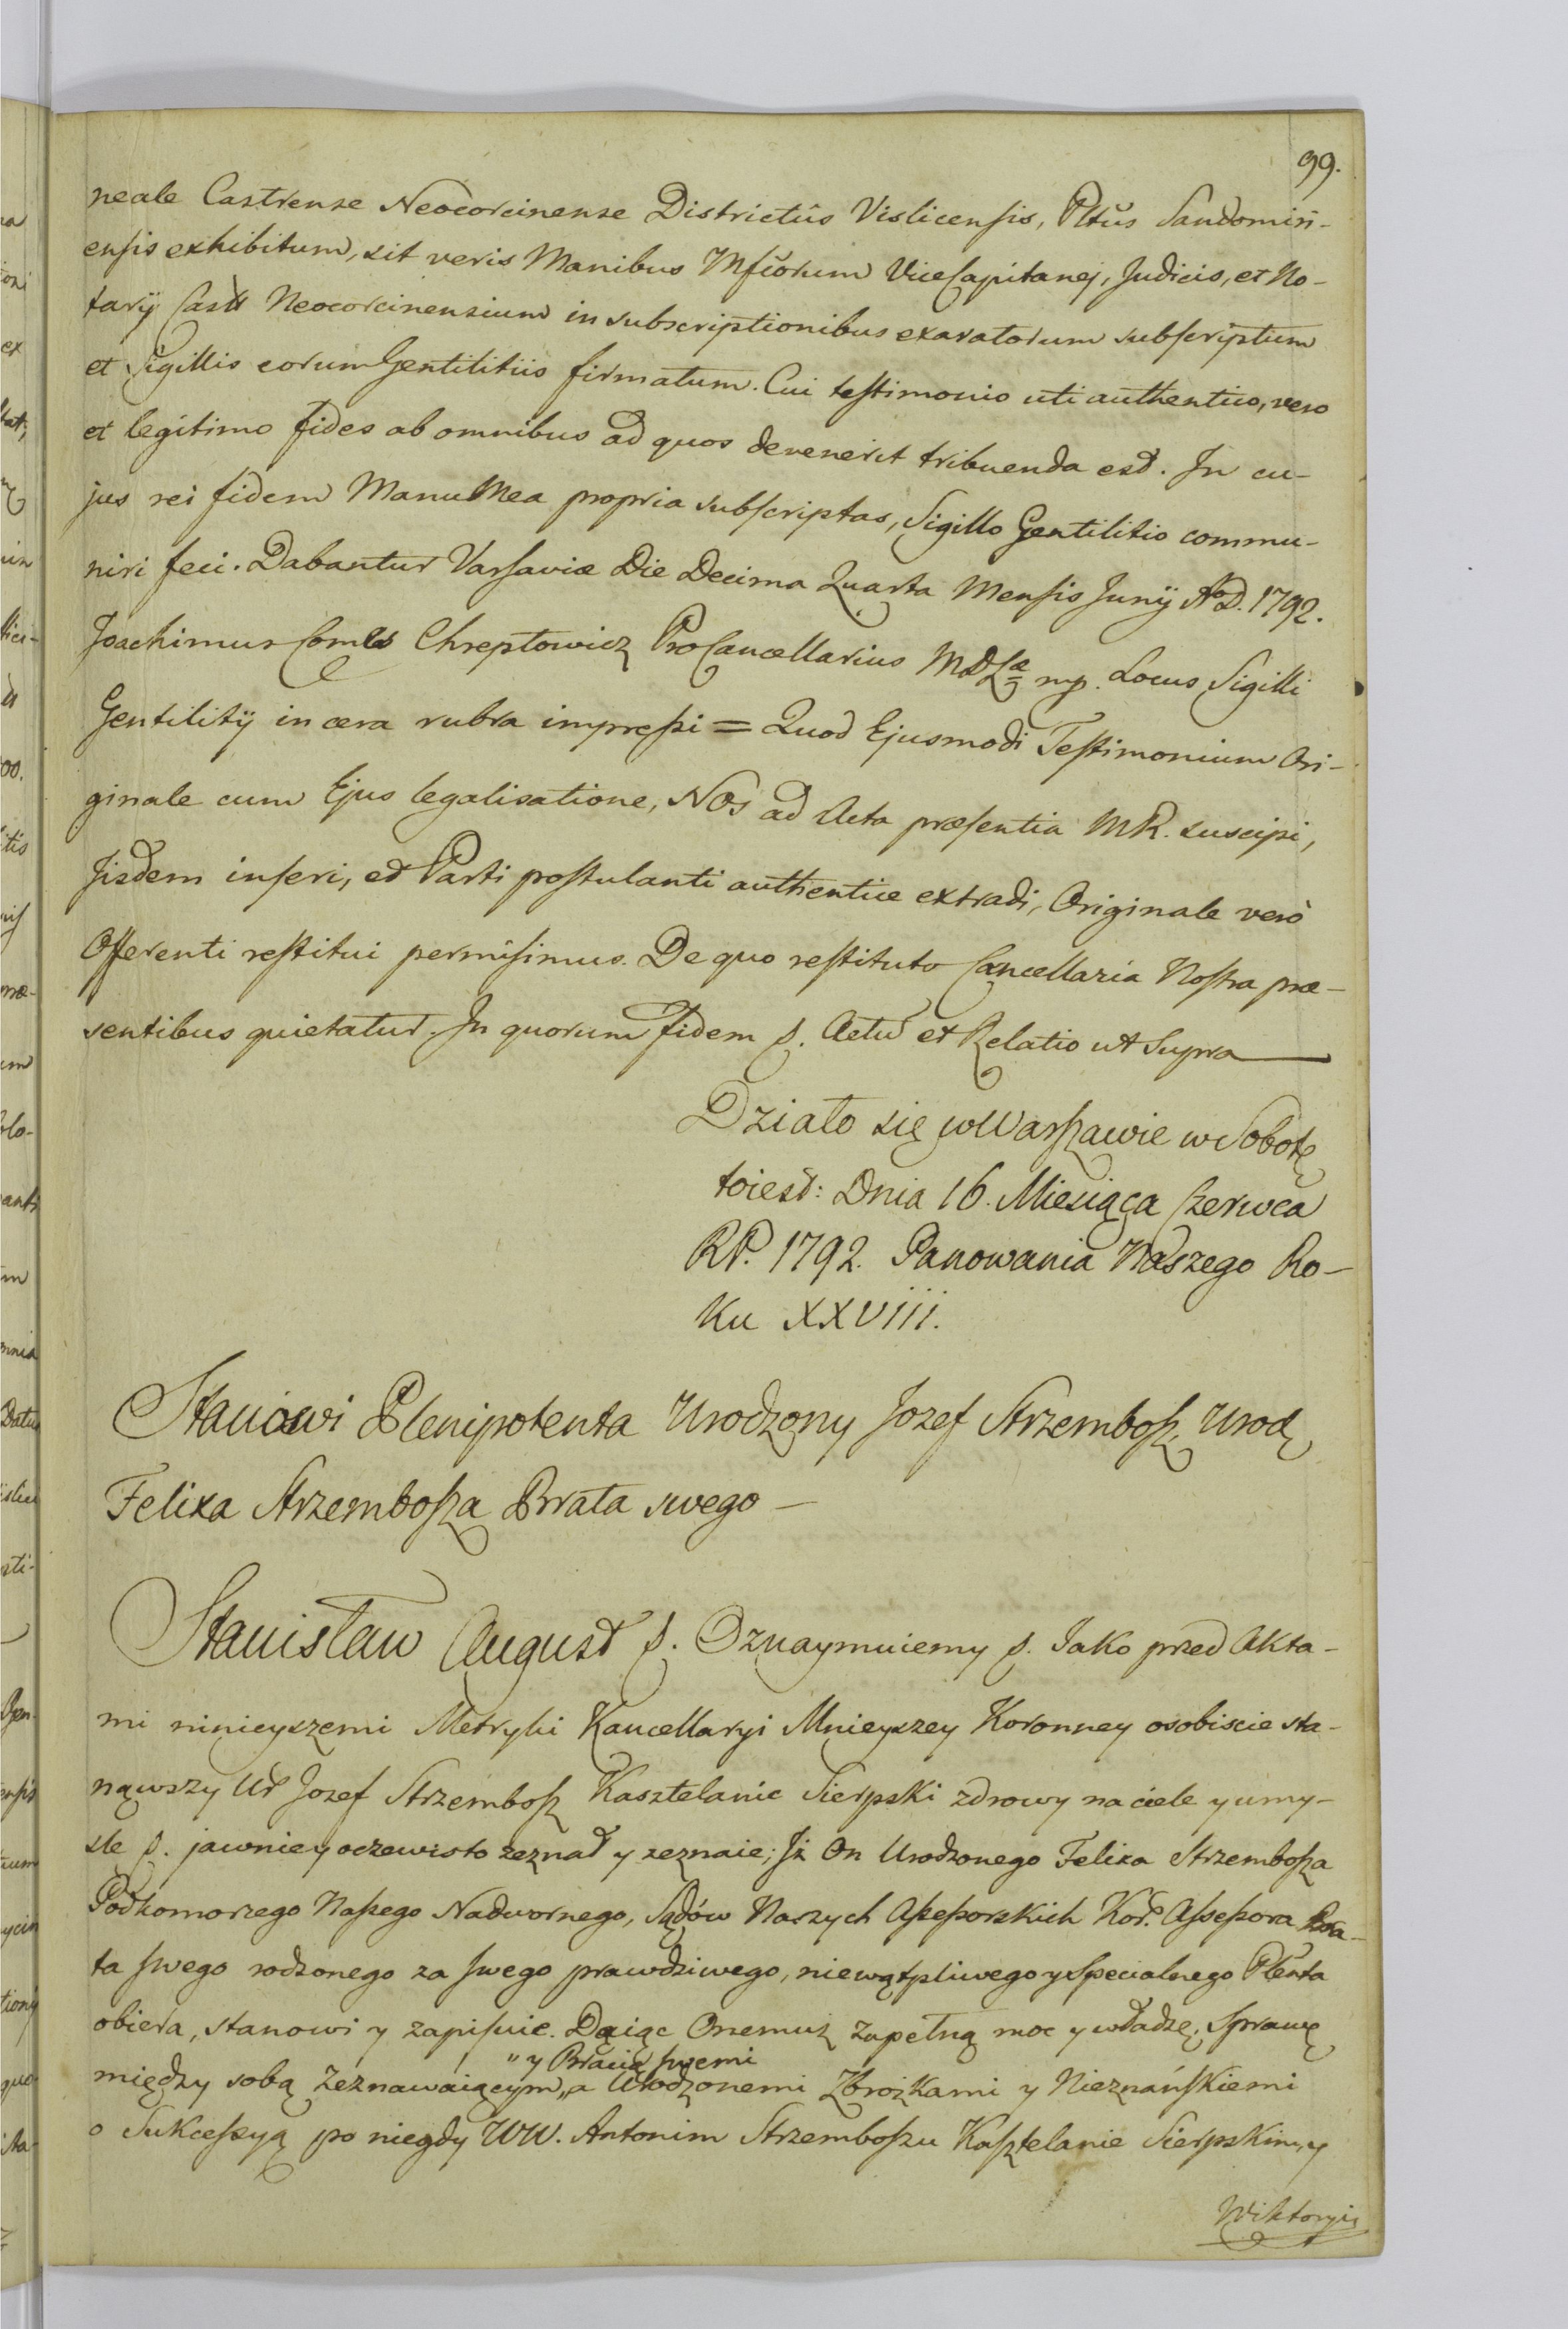 99.
neale Castrense Neocorcinense Districtûs Vislicensis, Pltûs Sandomiri-
ensis exhibitum, sit veris Manibus Mfcorum ViceCapitanej, Judicis, et No-
tarÿ Castr Neocorcinensium in subscriptionibus exaratorum subscriptum
et Sigillis eorum Gentilitiis firmatum. Cui testimonio uti authentico, vero
et legitimo fides ab omnibus ad quos devenerit tribuenda est. In cu-
jus rei fidem Manu Mea propria subscriptas, Sigillo Gentilitio commu-
niri feci. Dabantur Varsaviæ Die Decima Quarta Mensis Junÿ A.D. 1792.
Joachimus Comes Chreptowicz ProCancellarius MDLæ mp. Locus Sigilli
Gentilitÿ in cera rubra impressi = Quod Ejusmodi Testimonium Ori-
ginale cum Ejus legalisatione, Nos ad Acta præsentia MR. suscipi,
Jisdem inseri, et Parti postulanti authentice extradi, Originale verò
Offerenti restitui permisimus. De quo restituto Cancellaria Nostra præ-
sentibus quietatur. In quorum fidem p. Actu et Relatio ut Supra
Działo się w Warszawie w Sobotę
toiest: Dnia 16. Miesiąca Czerwca
RP. 1792. Panowania Naszego Ro-
ku XXVIII.
Stanowi Plenipotenta Urodzony Jozef Strzembosz, Urodz
Felixa Strzembosza Brata swego —
Stanisław August p. Oznaymuiemy p. Jako przed Akta-
mi ninieyszemi Metryki Kancellaryi Mnieyszey Koronney osobiscie sta-
nąwszy Ur Jozef Strzembosz Kasztelanic Sierpski zdrowy na ciele y umy-
sle p. jawnie y oczewisto zeznał y zeznaie; Jż On Urodzonego Felixa Strzembosza
Podkomorzego Naszego Nadwornego, Sądów Naszych Assessorskich Kor. Assessora Bra-
ta swego rodzonego za swego prawdziwego, niewątpliwego y Specialnego Plenta
obiera, stanowi y zapisuie. Daiąc Onemuż zupełną moc y władzę, Sprawę
" y Bracią swemi
między sobą Zeznawaiącym " a Urodzonemi Zbrożkami y Nieznańskiemi
o Sukcessyą po niegdy WW. Antonim Strzemboszu Kasztelanie Sierpskim, y
Wiktoryi